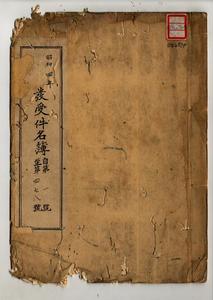 昭和四年
發受件名簿
自第一號
至第四七八號